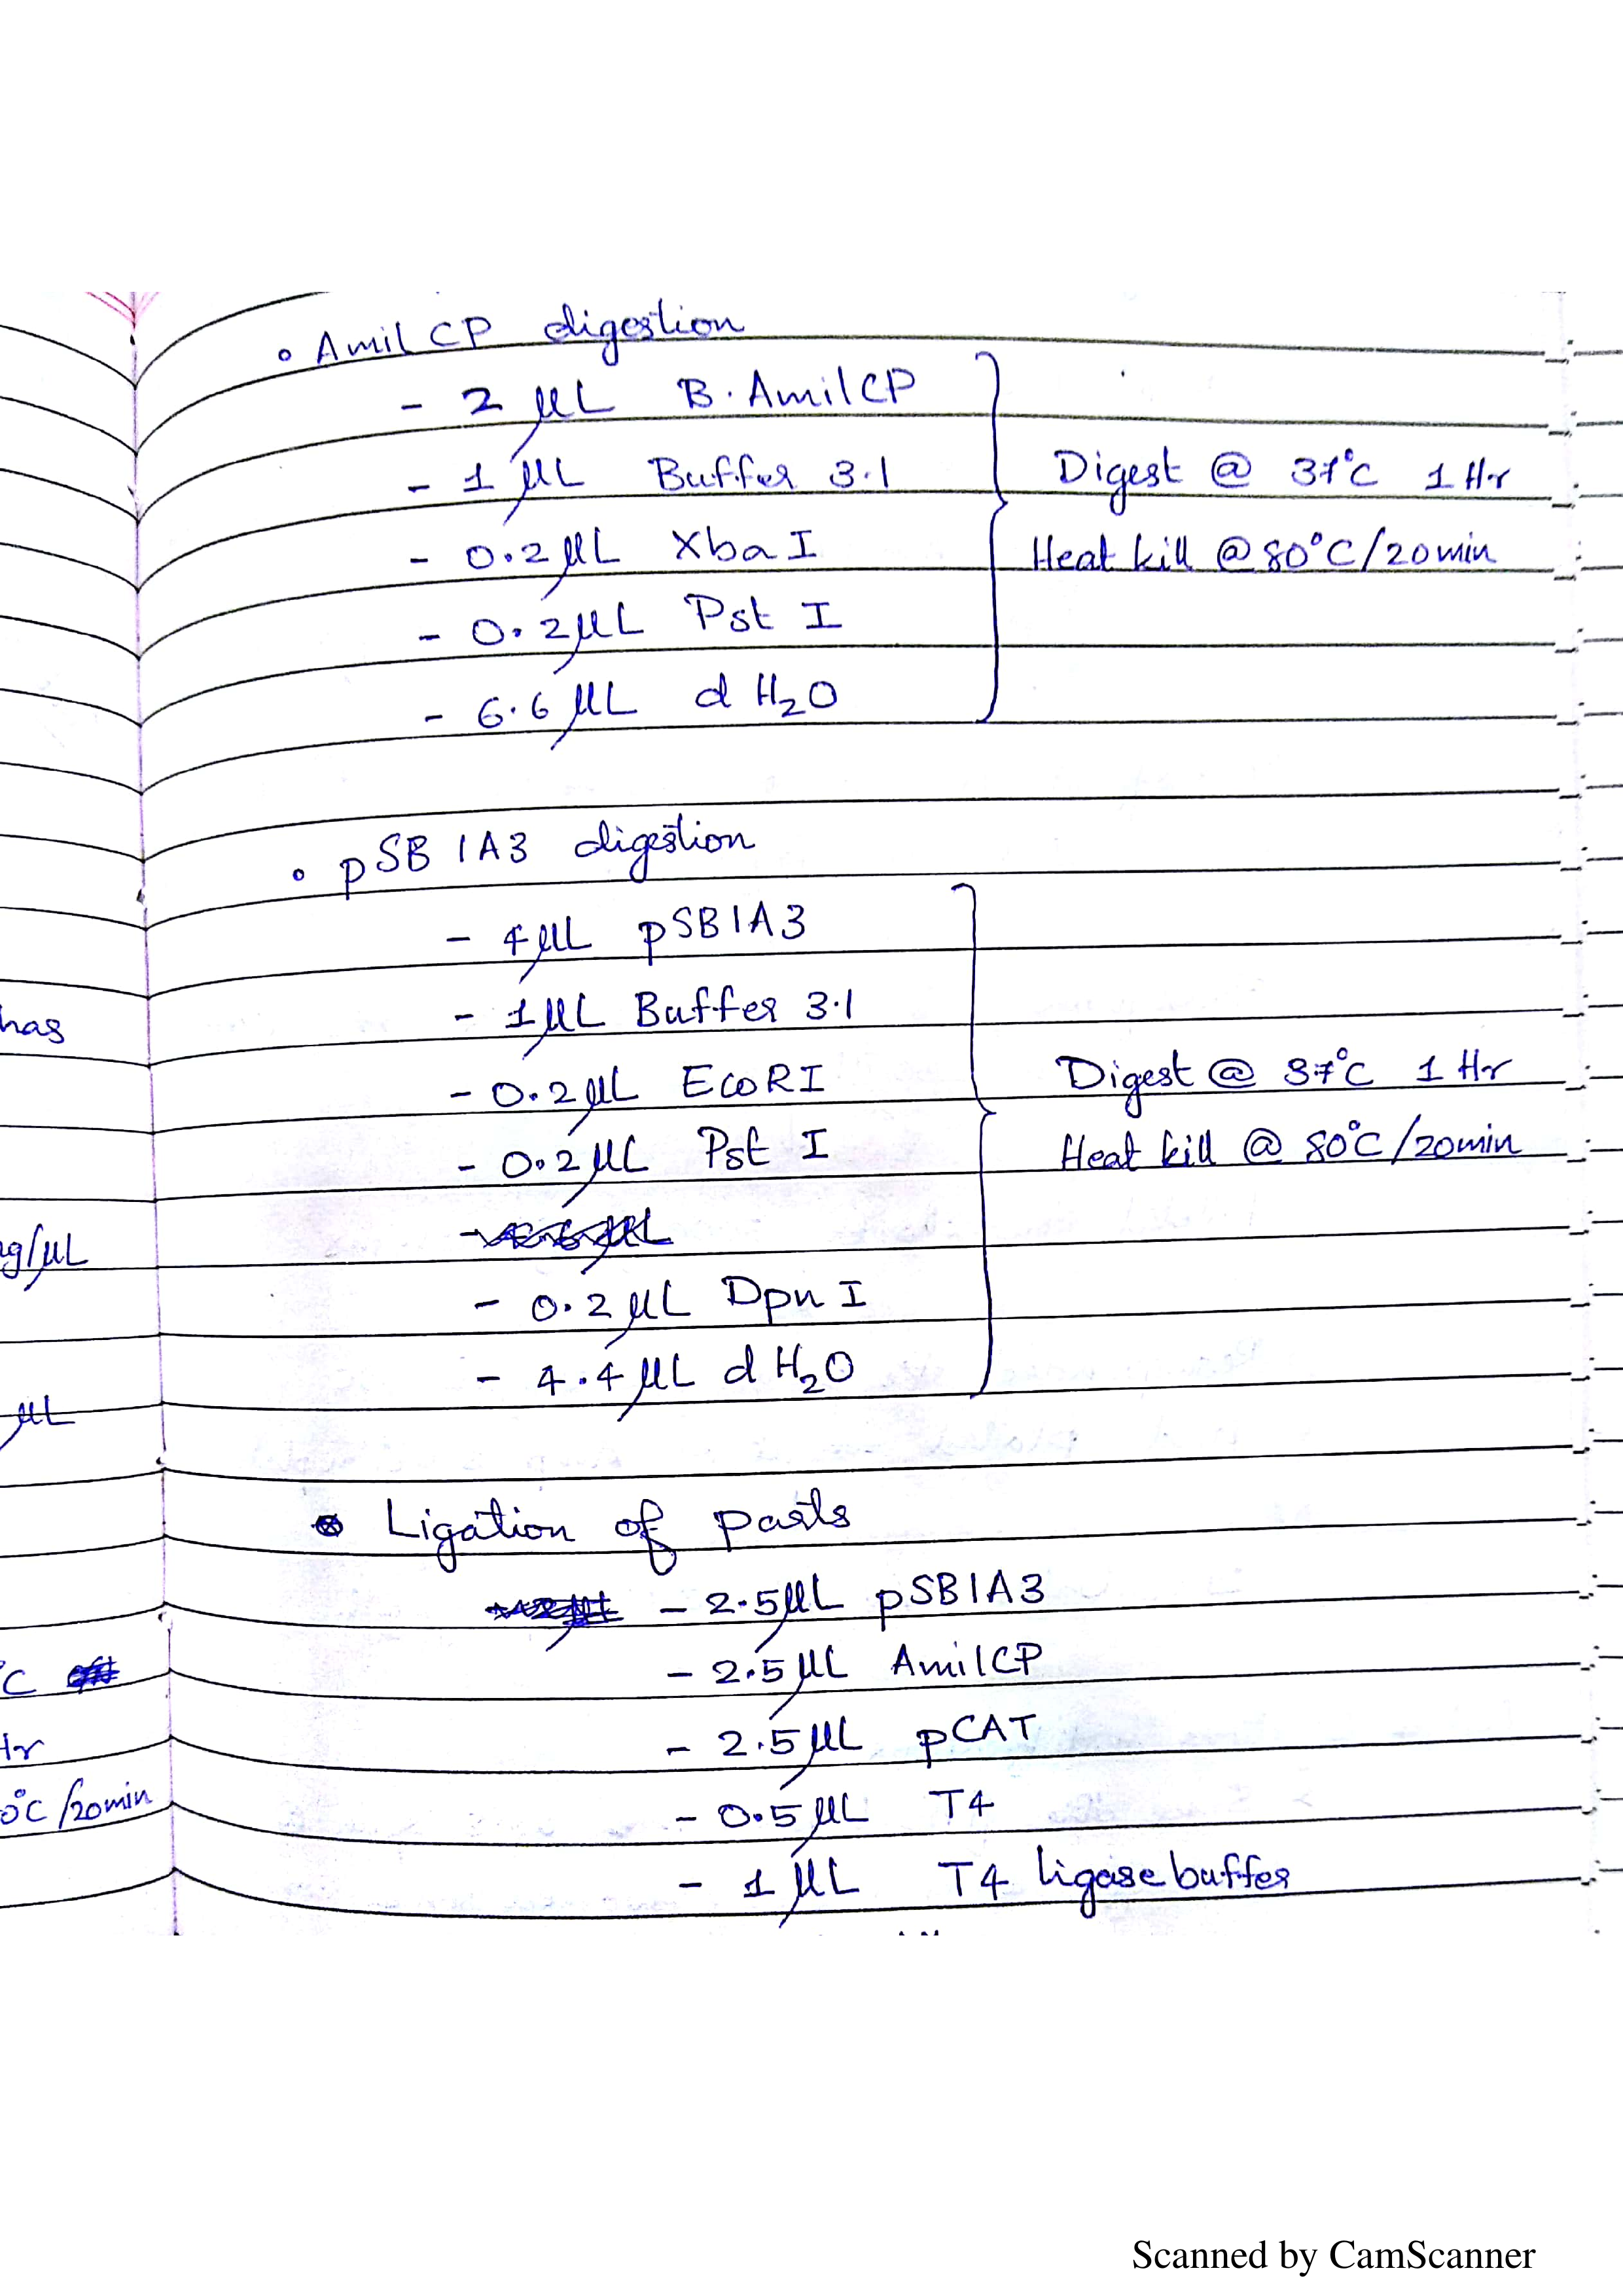 • AmilCP digestion
- 2 µL B. AmilCP
- 1 µL Buffer 3.1
- 0.2 µL Xba I
- 0.2 µL Pst I
- 6.6 µL d H₂O
Digest @ 37°C 1 Hr
Heat kill @ 80°C/20min
• pSB1A3 digestion
- 4 µL pSB1A3
- 1 µL Buffer 3.1
- 0.2 µL EcoRI
- 0.2 µL Pst I
- 0.2 µL Dpn I
- 4.4 µL d H₂O
Digest @ 37°C 1 Hr
Heat kill @ 80°C/20min
has
ng/µL
µL
°C
Hr
0°C/20min
• Ligation of parts
- 2.5 µL pSB1A3
- 2.5 µL AmilCP
- 2.5 µL pCAT
- 0.5 µL T4
- 1 µL T4 ligase buffer
Scanned by CamScanner